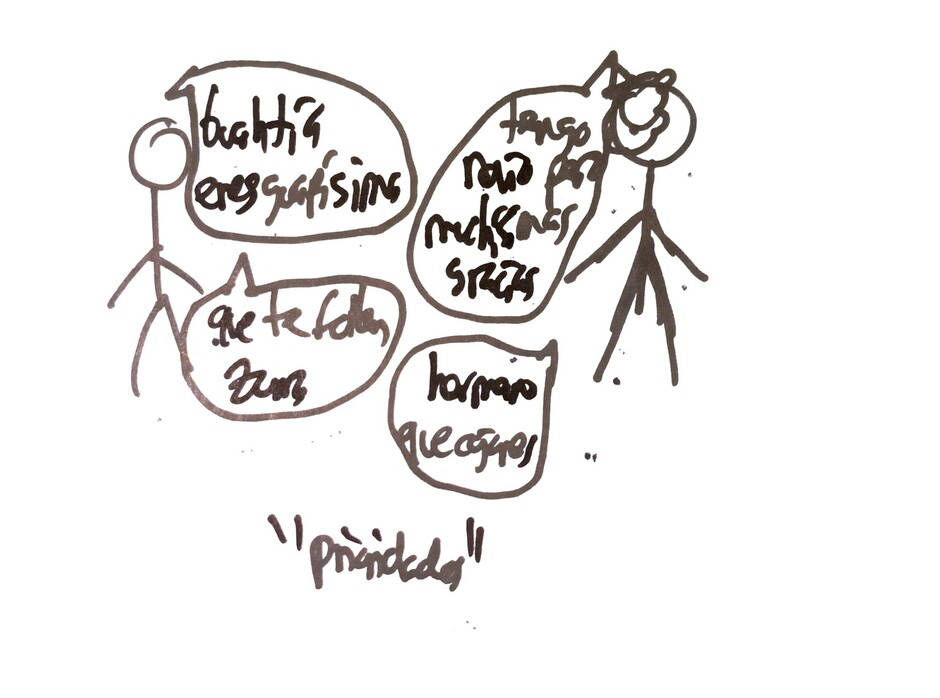 buah tía
eres guapísima
tengo
novio pero
muchísimas
gracias
que te follen
zorra
hermano
que coges
"prioridades"